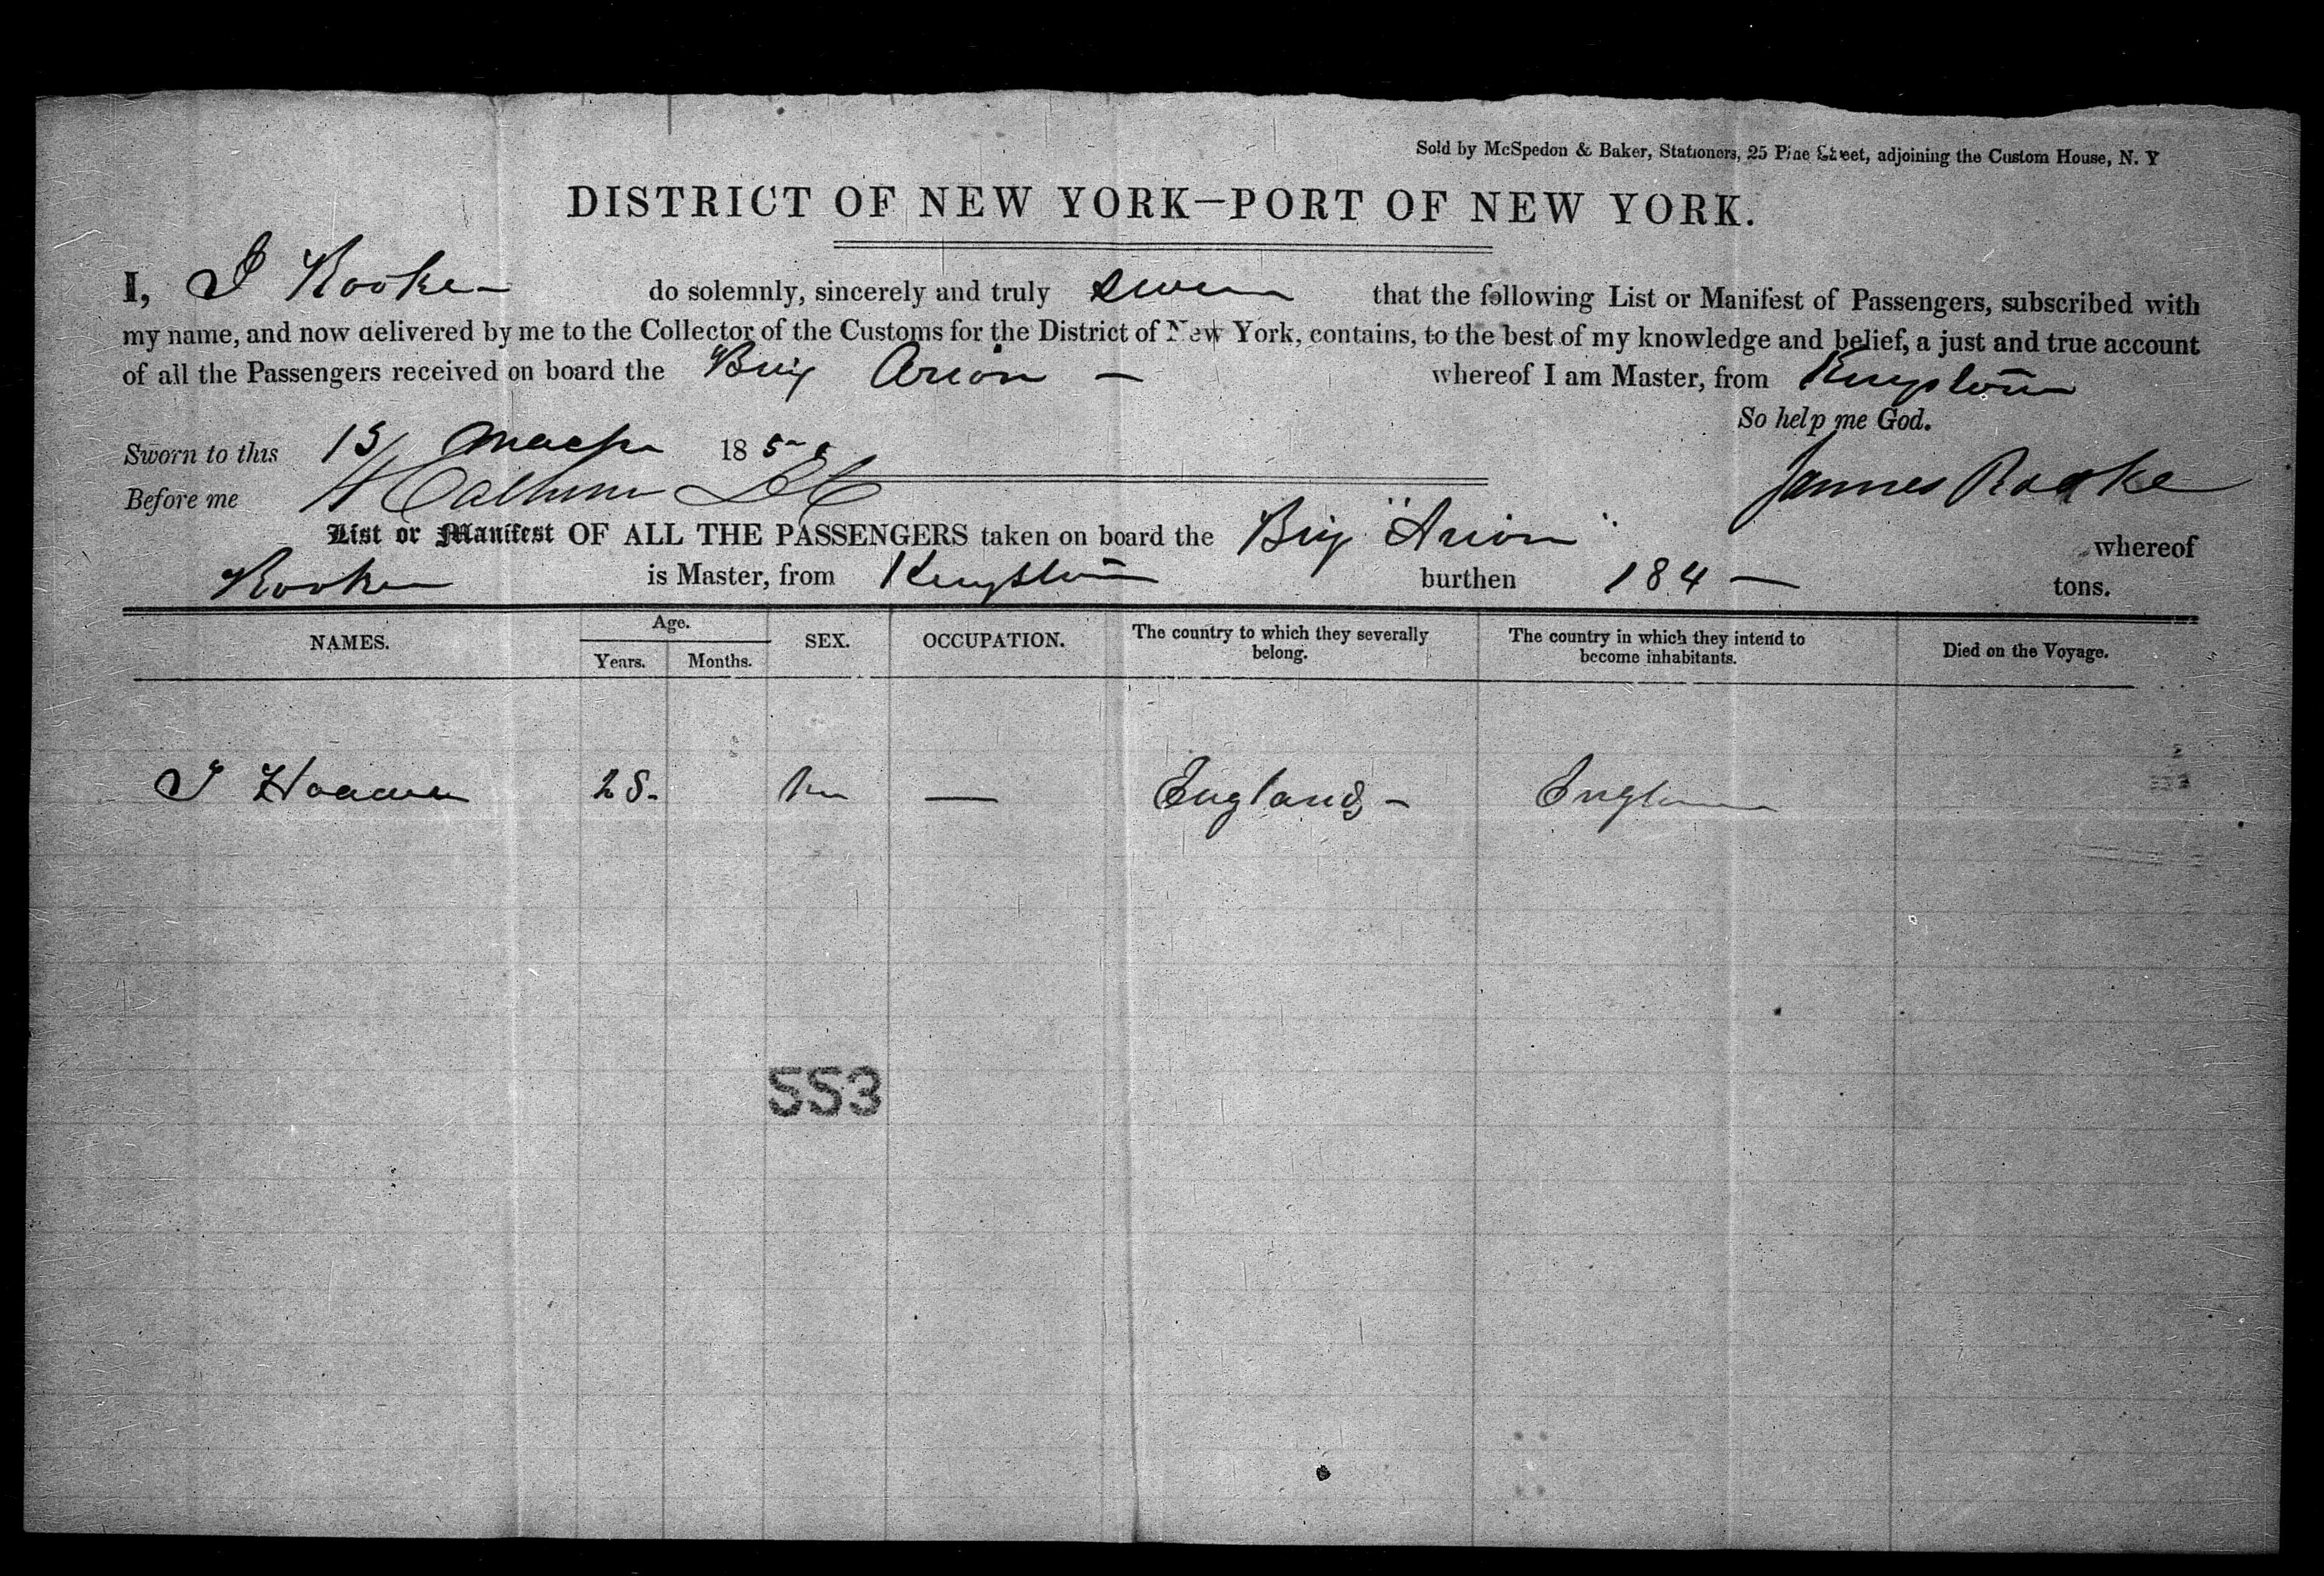 Sold by McSpedon & Baker, Stationers, 25 Pine Street, adjoining the Custom House, N. Y
DISTRICT OF NEW YORK—PORT OF NEW YORK.
I, J Rooke do solemnly, sincerely and truly swear that the following List or Manifest of Passengers, subscribed with
my name, and now delivered by me to the Collector of the Customs for the District of New York, contains, to the best of my knowledge and belief, a just and true account
of all the Passengers received on board the Brig Arion — whereof I am Master, from Kingston
So help me God.
Sworn to this 18
Before me Calhoun James Rooke
List or Manifest OF ALL THE PASSENGERS taken on board the Brig "Arion" whereof
Rooke is Master, from Kingston burthen 184 — tons.
NAMES. Age. SEX. OCCUPATION. The country to which they severally belong. The country in which they intend to become inhabitants. Died on the Voyage.
Years. Months.
J — England — England
553